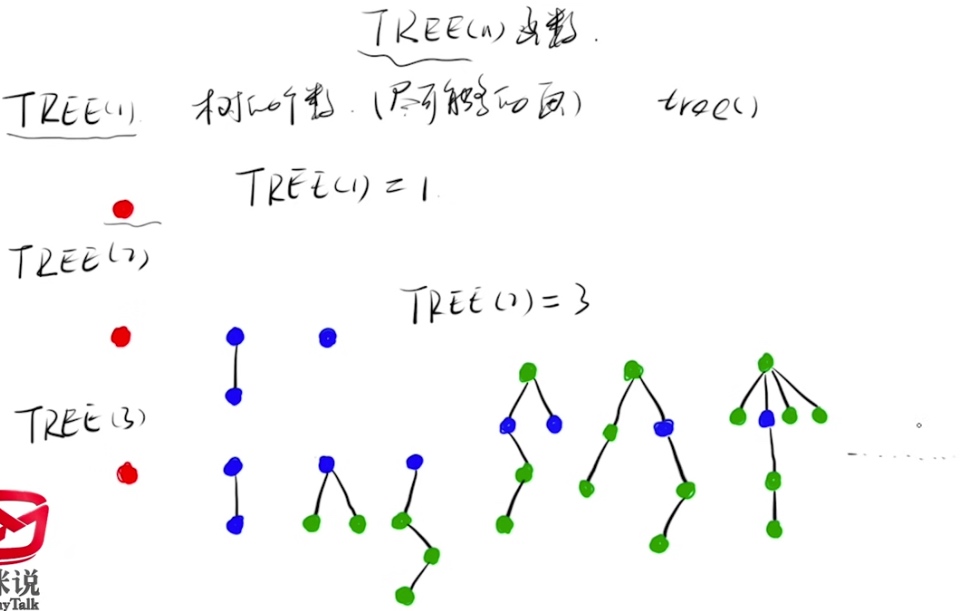 TREE(n)函数.
TREE(1) 树的个数.(尽可能多的画) tree()
TREE(1)=1.
TREE(2)
TREE(2)=3
TREE(3)
米说
nyTalk